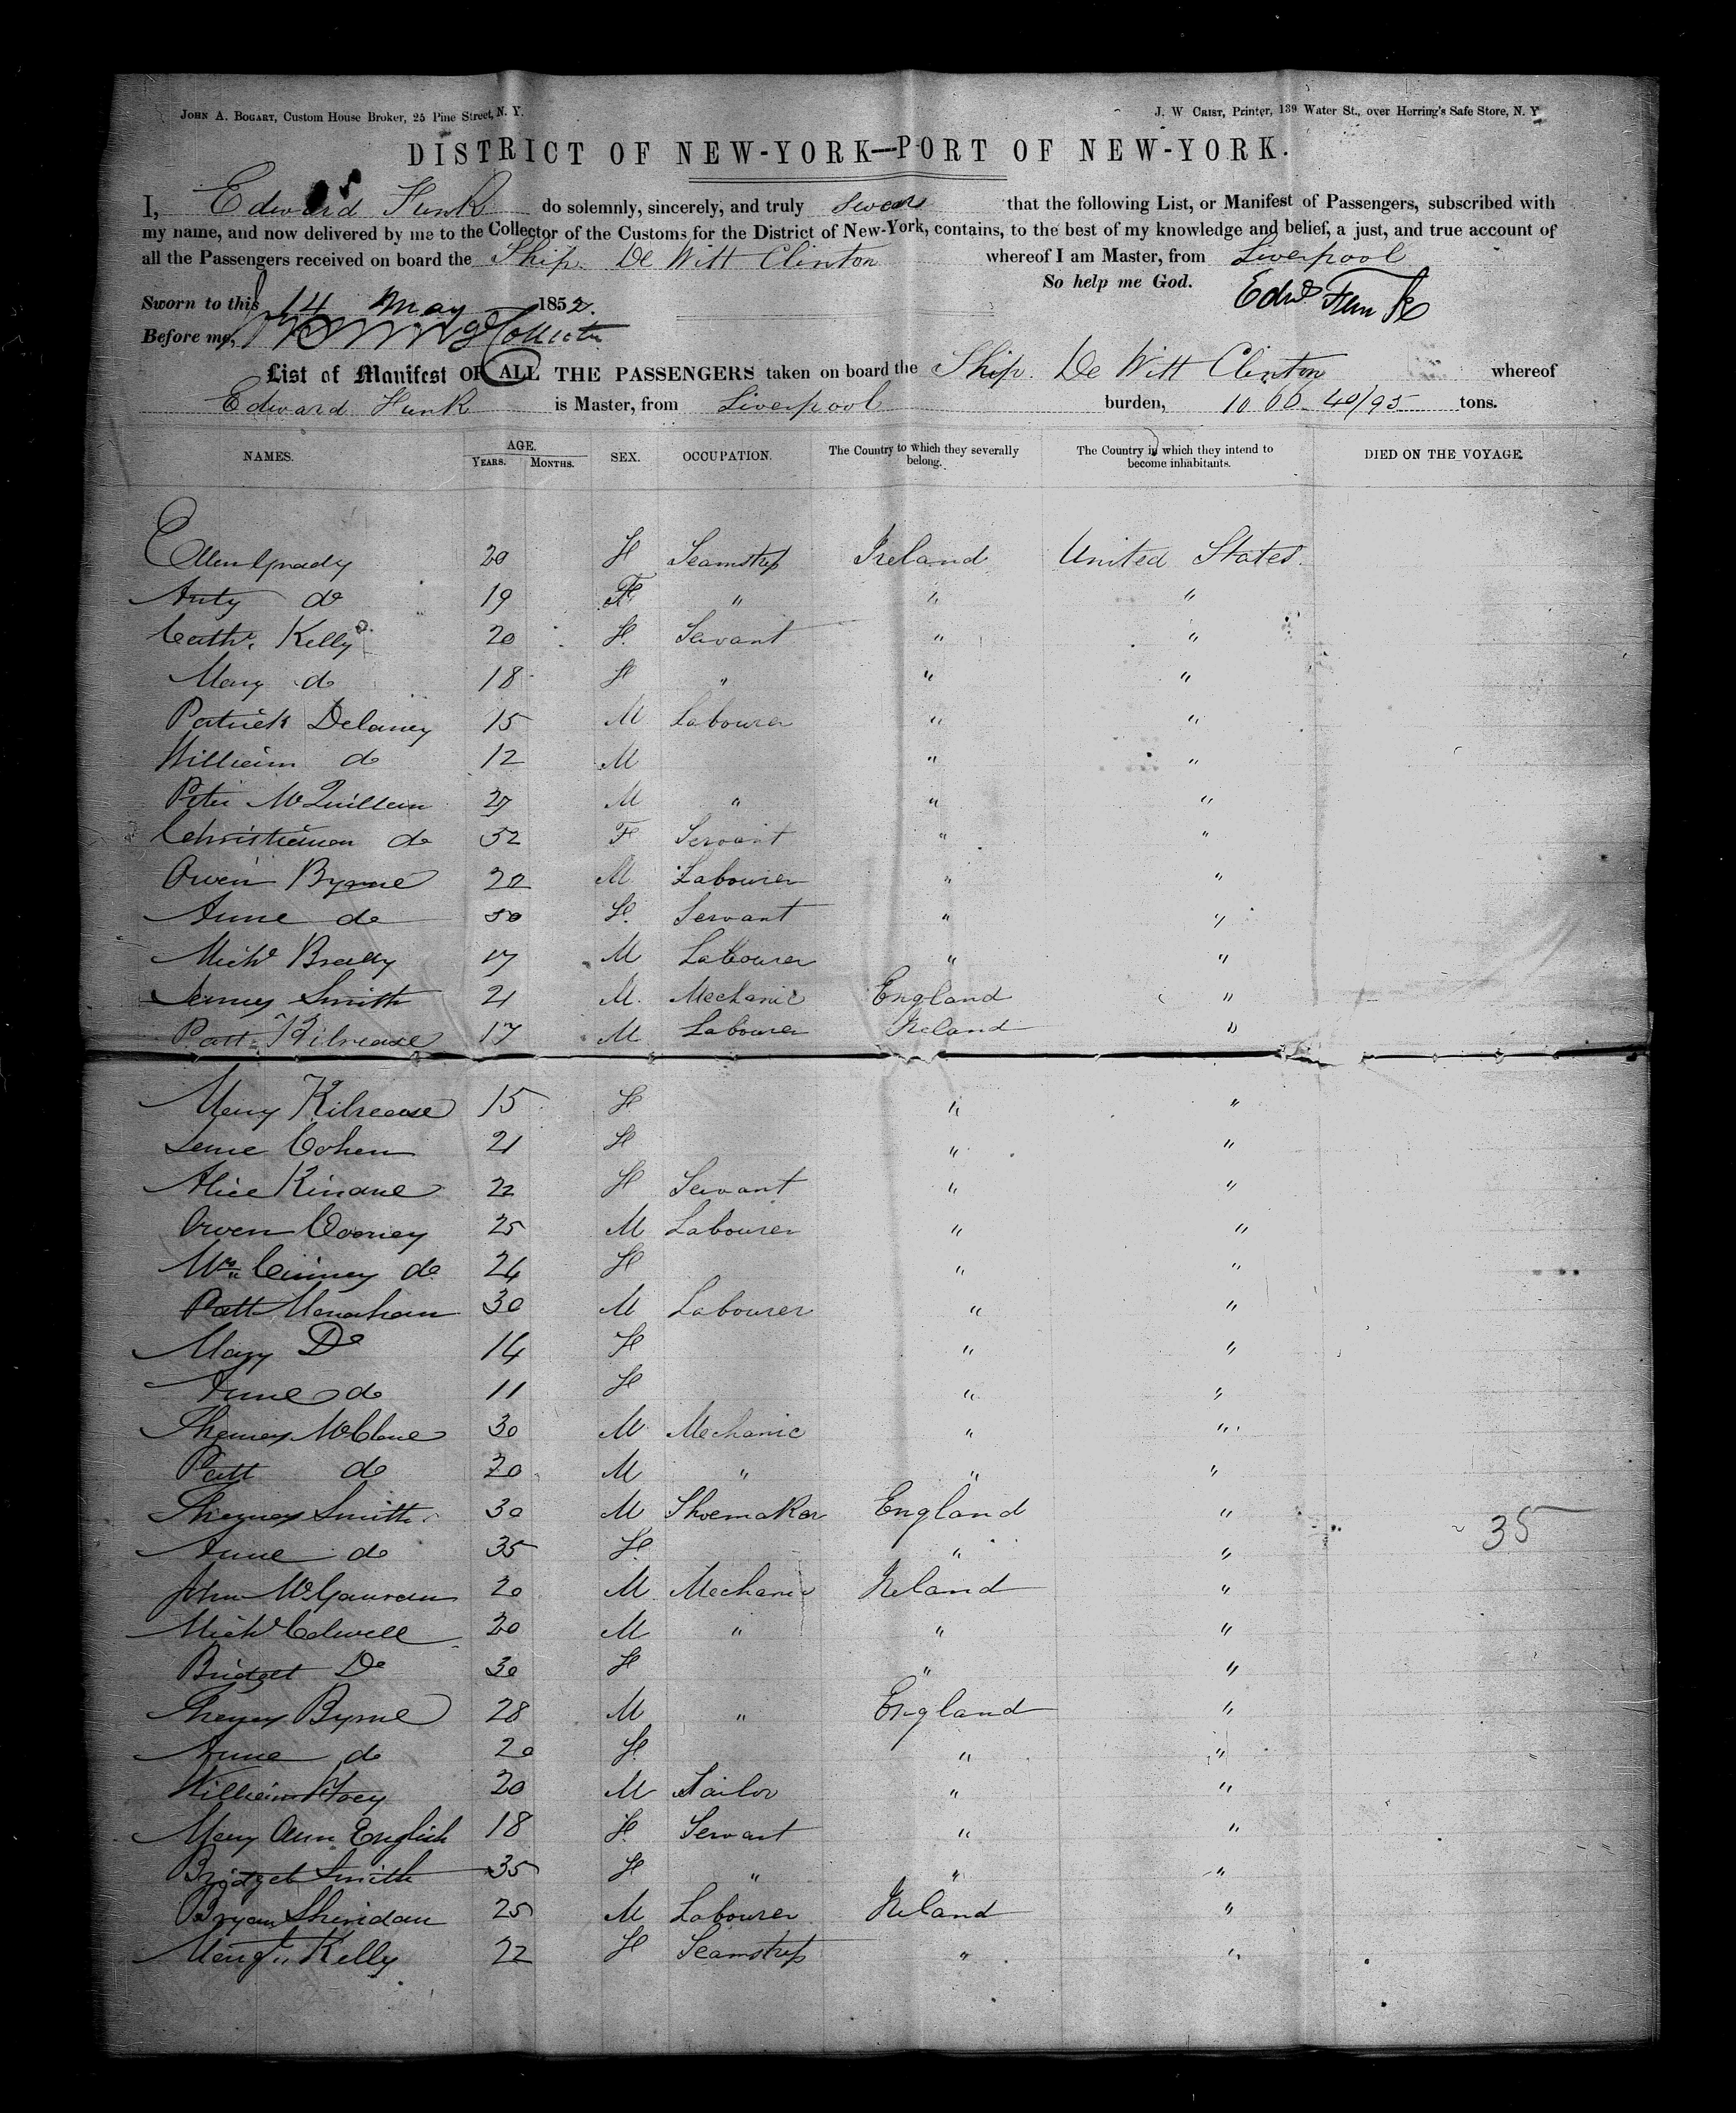 JOHN A. BOGART, Custom House Broker, 25 Pine Street, N. Y.
J. W CRIST, Printer, 139 Water St., over Herring's Safe Store, N. Y
DISTRICT OF NEW-YORK—PORT OF NEW-YORK.
I, Edward Funk do solemnly, sincerely, and truly swear that the following List, or Manifest of Passengers, subscribed with
my name, and now delivered by me to the Collector of the Customs for the District of New-York, contains, to the best of my knowledge and belief, a just, and true account of
all the Passengers received on board the Ship De Witt Clinton whereof I am Master, from Liverpool
So help me God.
Sworn to this 14 May 1852. Edwd Funk
Before me, Collector
List of Manifest OF ALL THE PASSENGERS taken on board the Ship De Witt Clinton whereof
Edward Funk is Master, from Liverpool burden, 1066 40/95 tons.
NAMES. AGE. YEARS. MONTHS. SEX. OCCUPATION. The Country to which they severally belong. The Country in which they intend to become inhabitants. DIED ON THE VOYAGE.
Ellen Grady 20 F Seamstress Ireland United States
do 19 F " " "
Cathe Kelly 20 F Servant " "
Mary do 18 F " " "
Patrick Delaney 15 M Labourer " "
William do 12 M " "
Peter McQuillan 27 M " " "
do 32 F Servant " "
Owen Byrne 20 M Labourer " "
Anne do 30 F Servant " "
Michl 17 M Labourer " "
Smith 21 M Mechanic England "
Patt 17 M Labourer Ireland "
Mary 15 F " "
Cohen 21 F " "
Alice Kinane 22 F Servant " "
Owen Cooney 25 M Labourer " "
Mrs do 24 F " "
Patt Monahan 30 M Labourer " "
Mary Do 14 F " "
Anne do 11 F " "
Thomas McClane 30 M Mechanic " "
Patt do 20 M " " "
Thomas Smith 30 M Shoemaker England "
Anne do 35 F " " 35
John McGauran 20 M Mechanic Ireland "
Michl Colwell 20 M " " "
Bridget Do 30 F " "
Thomas Byrne 28 M " England "
Anne do 20 F " "
William Hoey 20 M Tailor " "
Mary Ann English 18 F Servant " "
Bridget Smith 35 F " " "
Bryan Sheridan 25 M Labourer Ireland "
Margt Kelly 22 F Seamstress " "